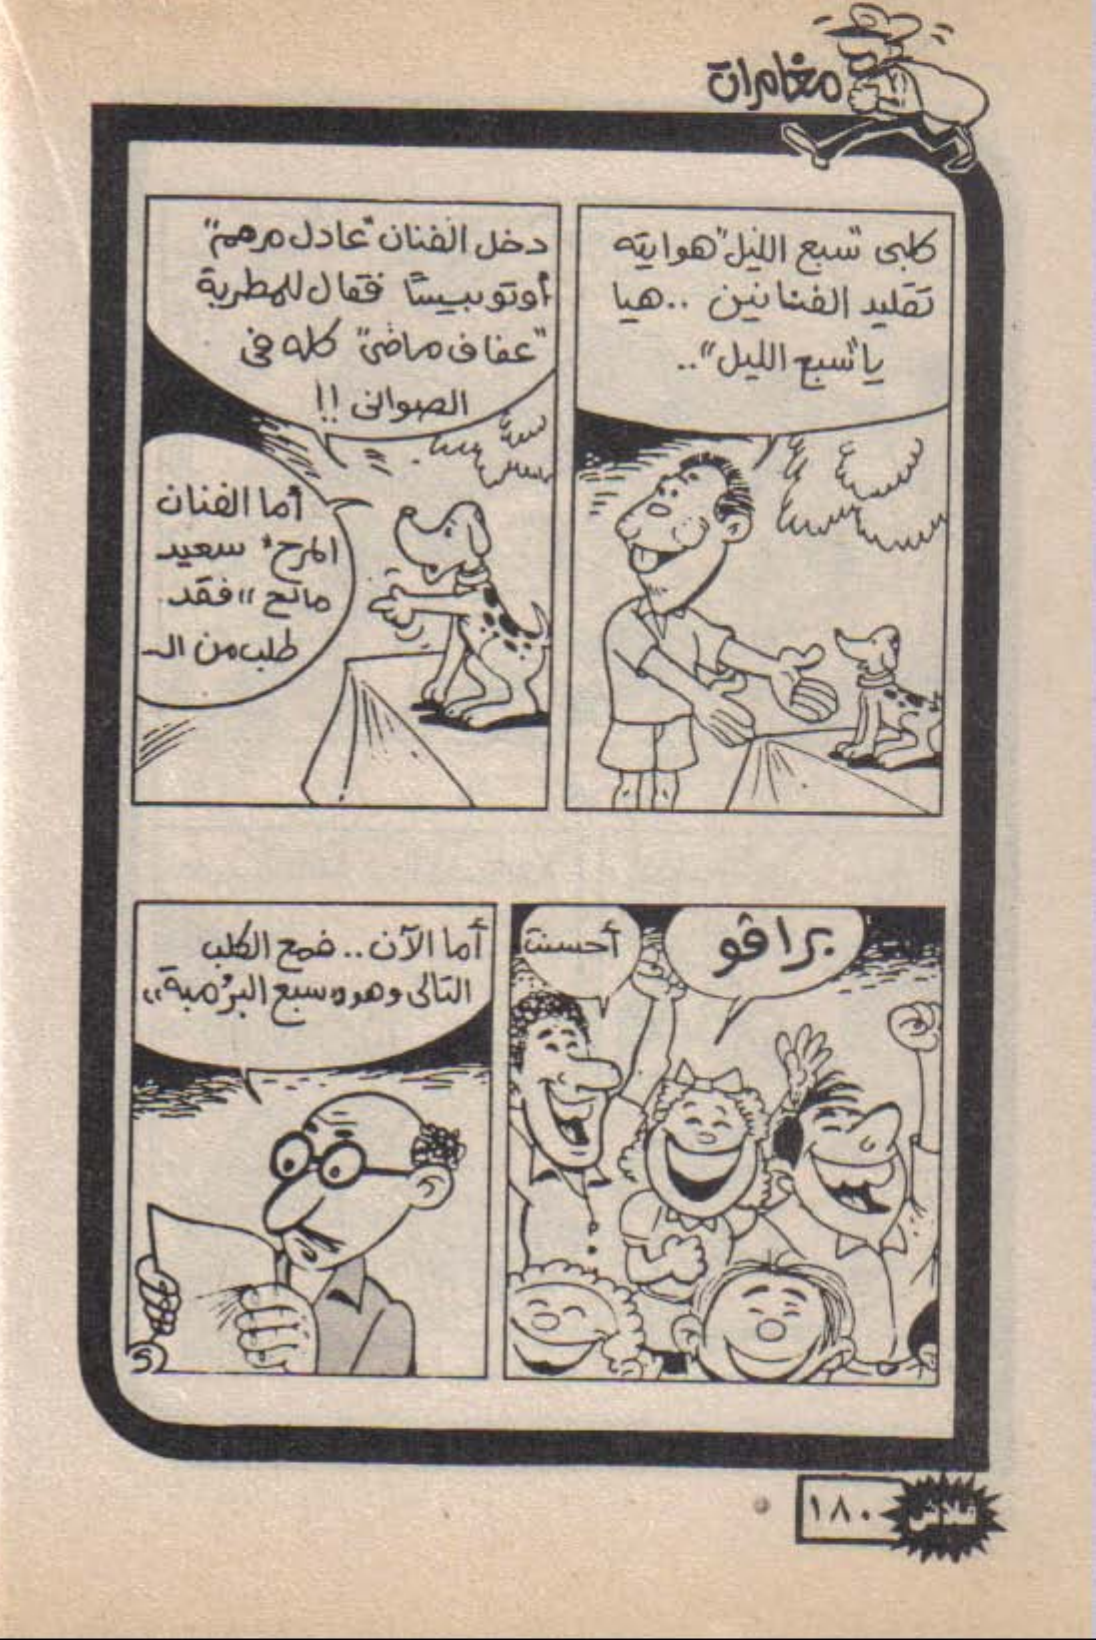 مغامرات
كلبى "سبع الليل" هوايته
تقليد الفنانين ..هيا
يا "سبع الليل"..
دخل الفنان "عادل مرهم"
أوتوبيسًا فقال للمطربة
"عفاف ماضى" كله فى
الصوانى !!
أما الفنان
المرح " سعيد
مالح " فقد
طلب من الـ
برافو
أحسنت
أما الآن .. فمع الكلب
التالى وهو " سبع البرُمبة "
فلاش
١٨٠